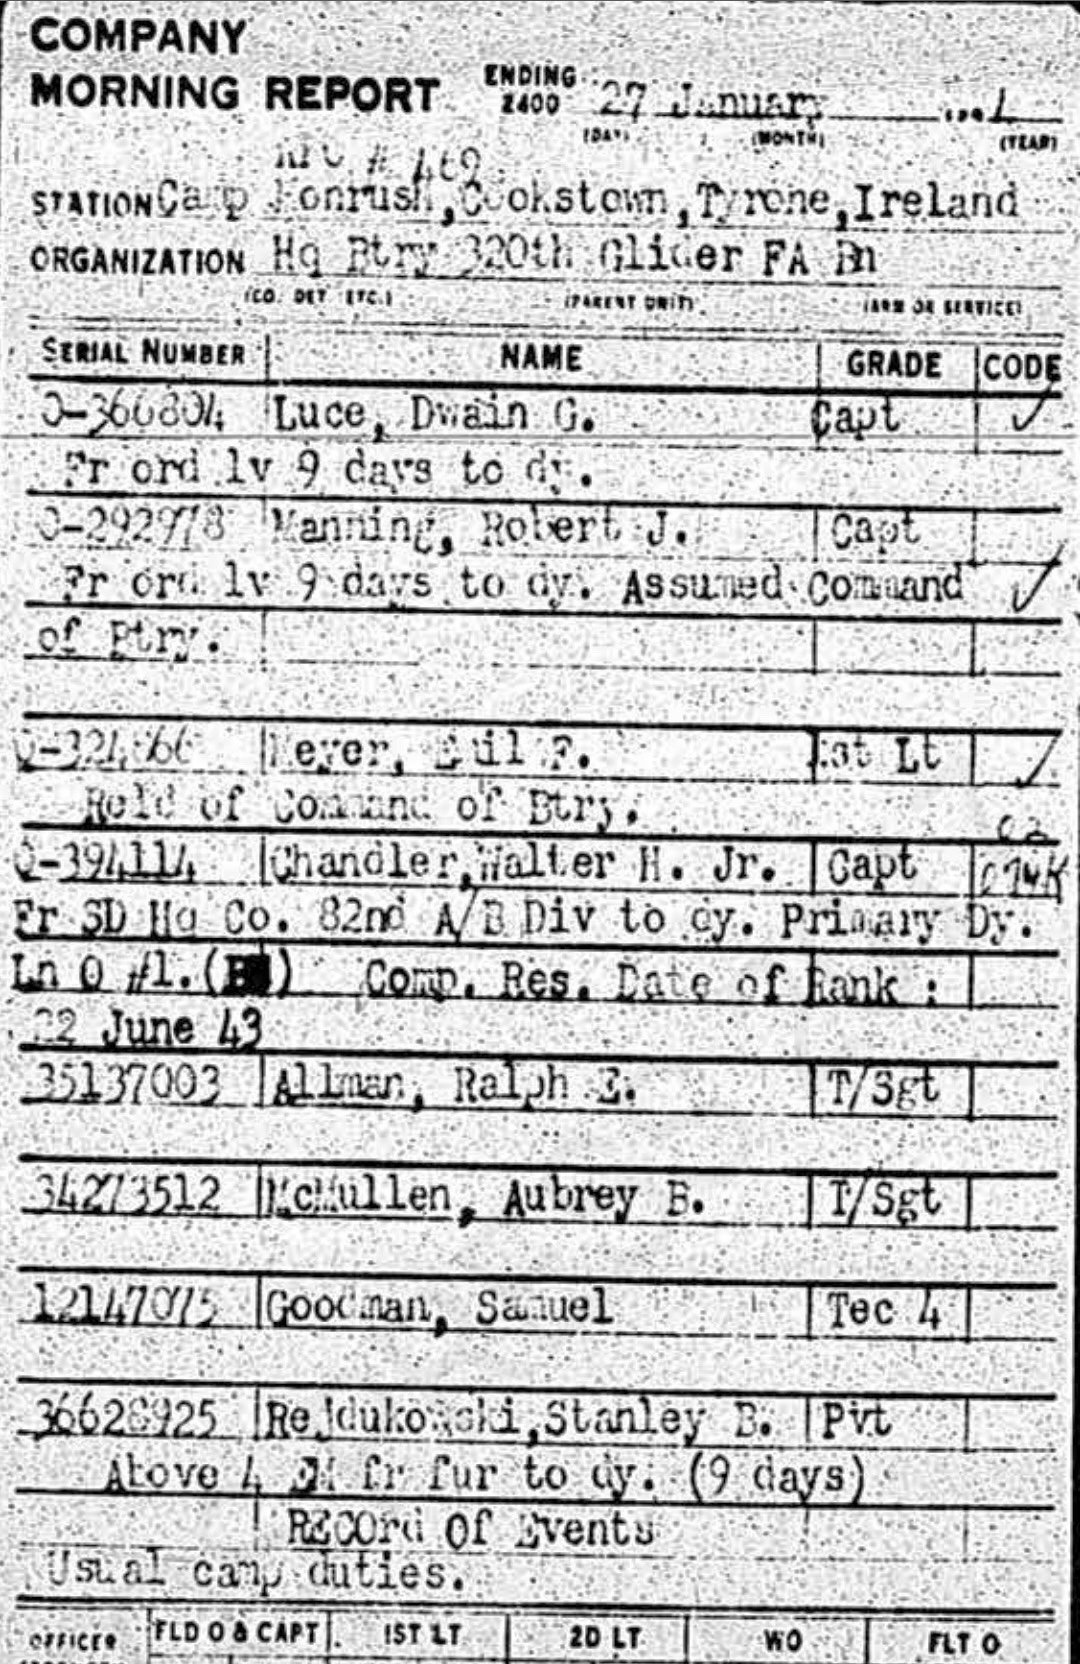 COMPANY
MORNING REPORT ENDING 2400 27 January
(DAY) (MONTH) (YEAR)
APO # 469
STATION Camp Lonrush, Cookstown, Tyrone, Ireland
ORGANIZATION Hq Btry 320th Glider FA Bn
(CO. DET ETC.) (PARENT UNIT) (ARM OR SERVICE)
SERIAL NUMBER NAME GRADE CODE
O-366804 Luce, Dwain G. Capt ✓
Fr ord lv 9 days to dy.
O-292978 Manning, Robert J. Capt
Fr ord lv 9 days to dy. Assumed Command ✓
of Btry.
Meyer, Emil F. 1st Lt ✓
Reld of Command of Btry.
O-394114 Chandler, Walter H. Jr. Capt
Fr SD Hq Co. 82nd A/B Div to dy. Primary Dy.
Ln O #1. Comp. Res. Date of Rank :
22 June 43
35137003 Allman, Ralph E. T/Sgt
34273512 McMullen, Aubrey B. T/Sgt
12147075 Goodman, Samuel Tec 4
36628925 Stanley B. Pvt
Above 4 EM fr fur to dy. (9 days)
RECOrd Of Events
Usual camp duties.
OFFICER FLD O & CAPT 1ST LT 2D LT WO FLT O